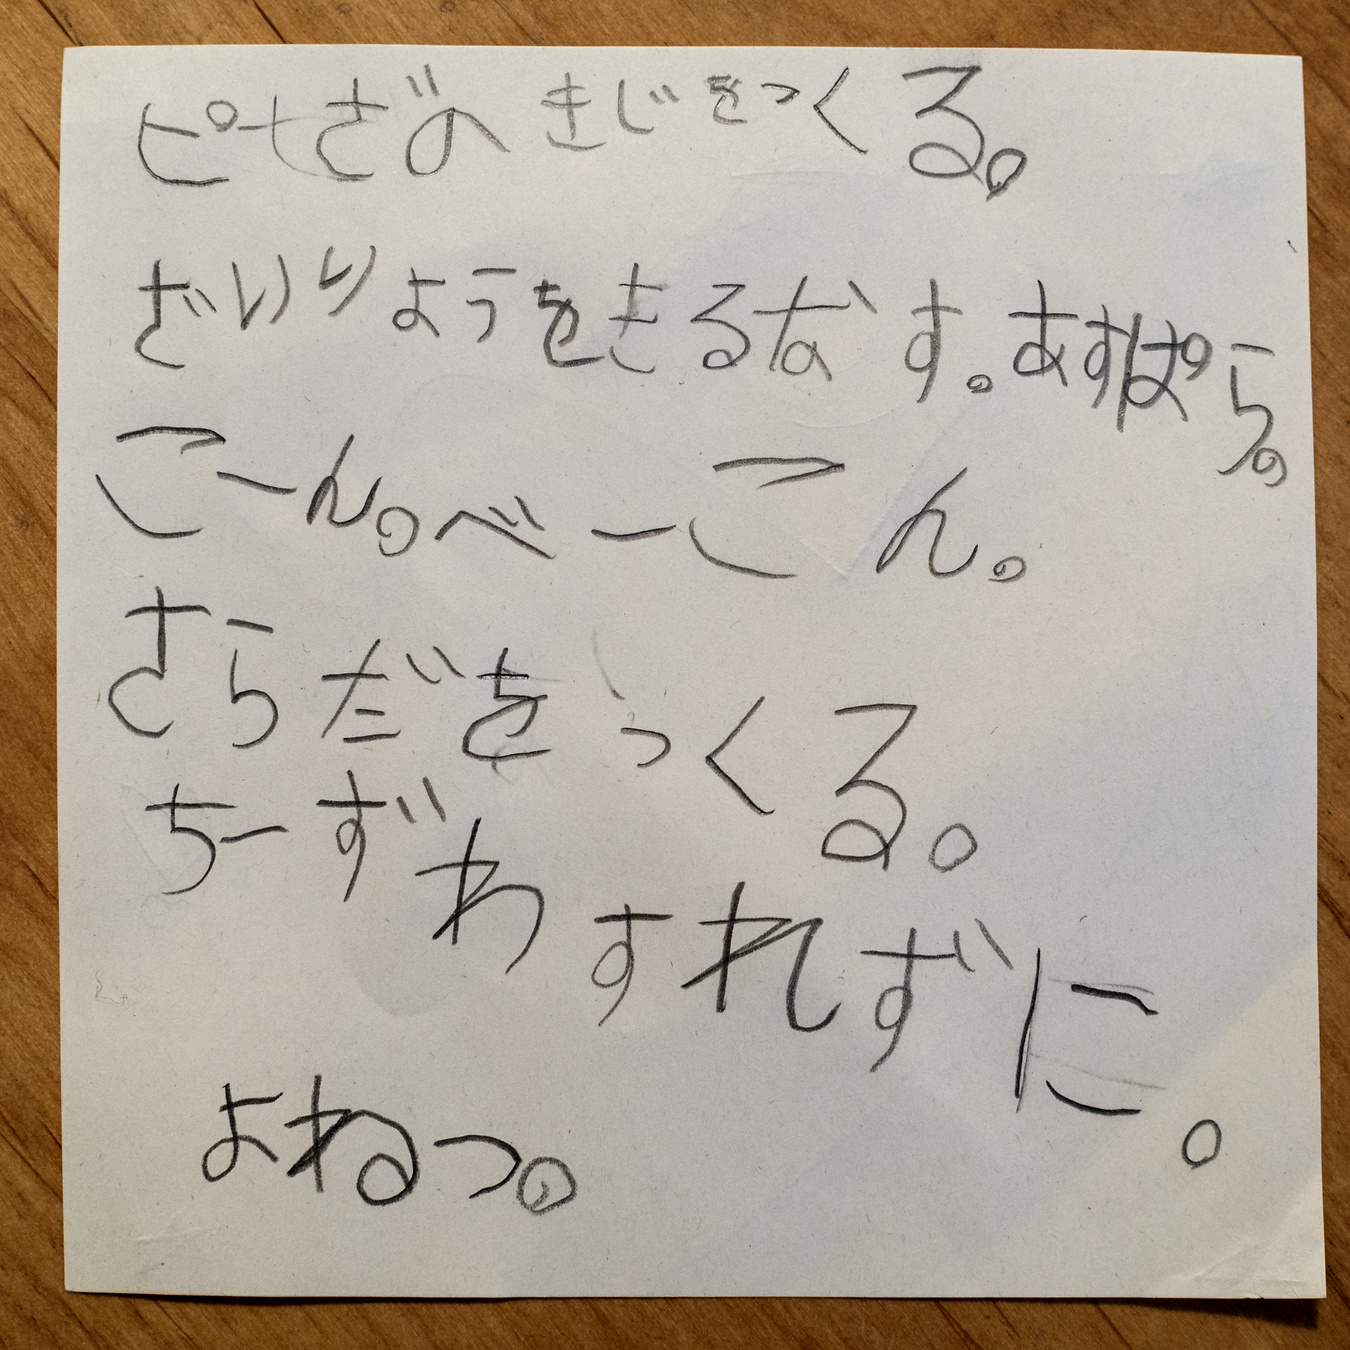 ピーざの きじをつくる。
ざいりようをきるなす。あすぱら。
こーん。べーこん。
さらだをつくる。
ちーずわすれずに。
よねつ。